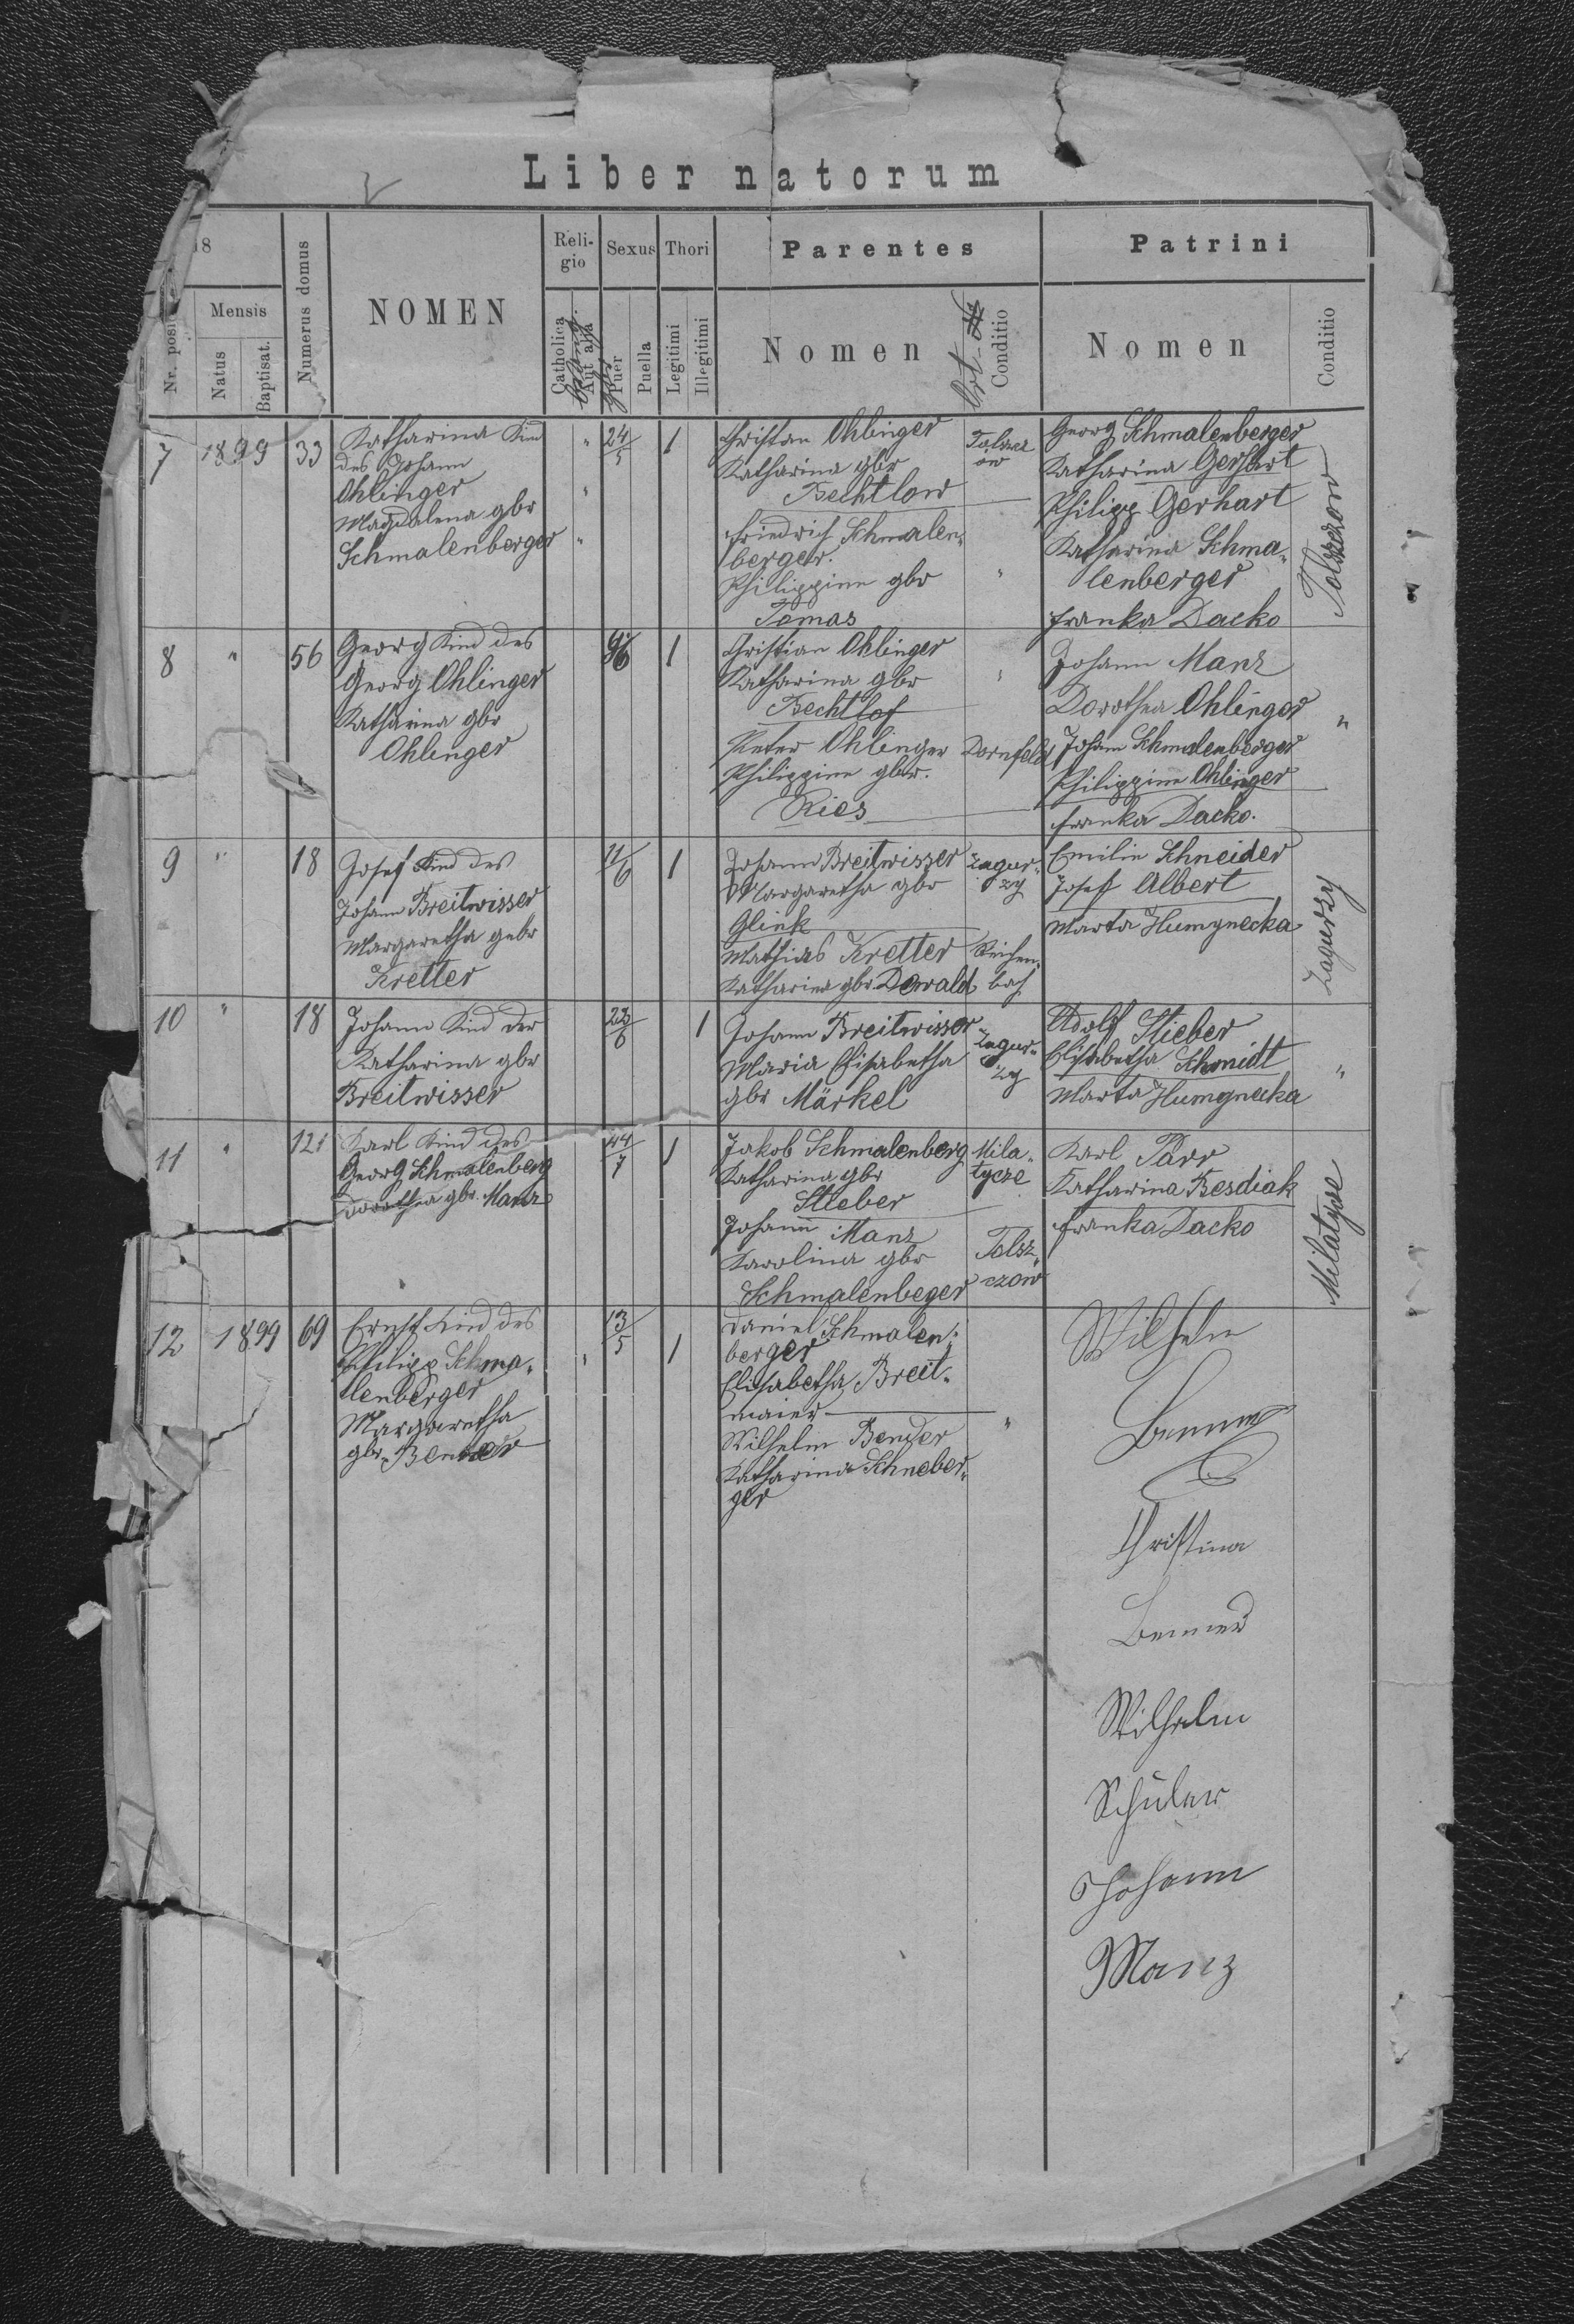 Liber natorum
18
Nr. posi
Mensis
Natus
Baptisat.
Numerus domus
NOMEN
Reli-
gio
Catholica
Aut alia
Sexus
Puer
Puella
Thori
Legitimi
Illegitimi
Parentes
Nomen
Ort
Conditio
Patrini
Nomen
Conditio
7 1899 33
Katharina Kind
des Johann
Ohlinger
Magdalena gbr
Schmalenberger
24/5 1
Christian Ohlinger
Katharina gbr
Bechtlow
Friedrich Schmalen-
berger.
Philippine gbr
Tomas
Tolszcz
ow
"
Georg Schmalenberger
Katharina Gerhart
Philipp Gerhart
Katharina Schma-
lenberger
Franka Dacko
Tolszczow
8 " 56
Georg Kind des
Georg Ohlinger
Katharina gbr
Ohlinger
1
Christian Ohlinger
Katharina gbr
Bechtlof
Peter Ohlinger
Philippine gbr.
Ries
"
Dornfeld
Johann Manz
Dorothea Ohlinger
Johann Schmalenberger
Philippine Ohlinger
Franka Dacko.
"
9 " 18
Josef Kind des
Johann Breitwisser
Margaretha gebr
Kretter
11/6 1
Johann Breitwisser
Margaretha gbr
Glink
Mathias Kretter
Katharina gbr. Dewald
Zagur-
zy
Reichen-
bach
Emilie Schneider
Josef Albert
Marta Humynecka
Zagurzy
10 " 18
Johann Kind der
Katharina gbr
Breitwisser
23/6 1
Johann Breitwisser
Maria Elisabetha
gbr Märkel
Zagur-
zy
Adolf Stieber
Elisabetha Schmidt
Marta Humynecka
"
11 " 121
Karl Kind des
Georg Schmalenberg
Dorothea gbr. Manz
1
Jakob Schmalenberg
Katharina gbr
Stieber
Johann Manz
Karolina gbr
Schmalenbeger
Mila-
tycze
Tolsz-
czow
Karl Parr
Katharina Besdiak
Franka Dacko
Milatycze
12 1899 69
Ernst Kind des
Philipp Schma-
lenberger
Margaretha
gbr. Bender
13/5 1
Daniel Schmalen-
berger
Elisabetha Breit-
maier
Wilhelm Bender
Katharina Schneber-
ger
"
Wilhelm
Christina
Wilhelm
Schüler
Johann
Manz